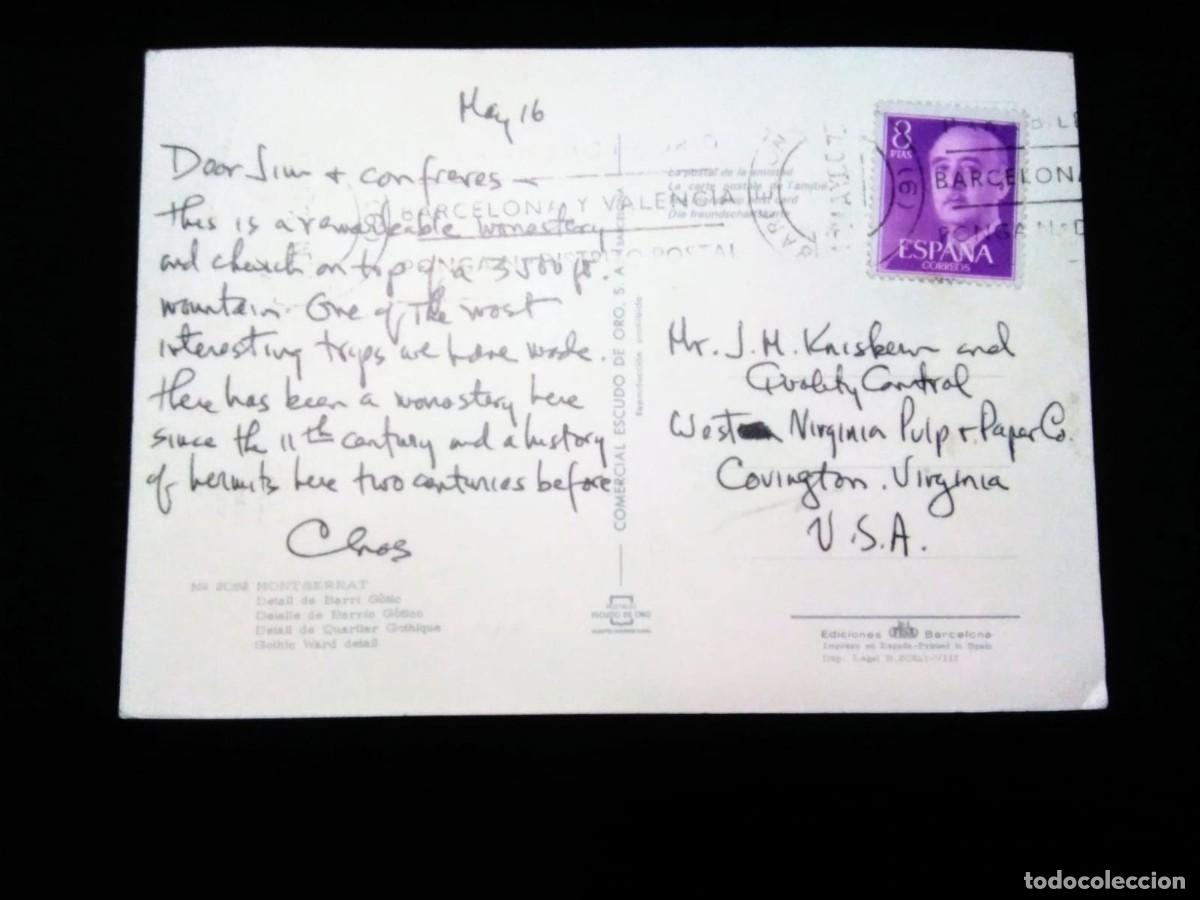 May 16
Dear Jim + confreres –
This is a remarkable monastery
and church on top of a 3500 ft.
mountain. One of the most
interesting trips we have made.
There has been a monastery here
since the 11th century and a history
of hermits here two centuries before
Chas
Nº MONTSERRAT
Detall de Barri Gòtic
Detalle de Barrio Gótico
Detail de Quartier Gothique
Gothic Ward detail
BARCELONA Y VALENCIA
PONGAN DISTRITO POSTAL
COMERCIAL ESCUDO DE ORO, S. A.
Reproducción prohibida
ESCUDO DE ORO
La postal de la amistad
La carte postale de l'amitié
Die freundschaftskarte
8
PTAS
ESPAÑA
CORREOS
BARCELONA
Mr. J. M. Kniskern and
Quality Control
West Virginia Pulp + Paper Co.
Covington, Virginia
U.S.A.
Ediciones Barcelona
Impreso en España-Printed in Spain
todocoleccion